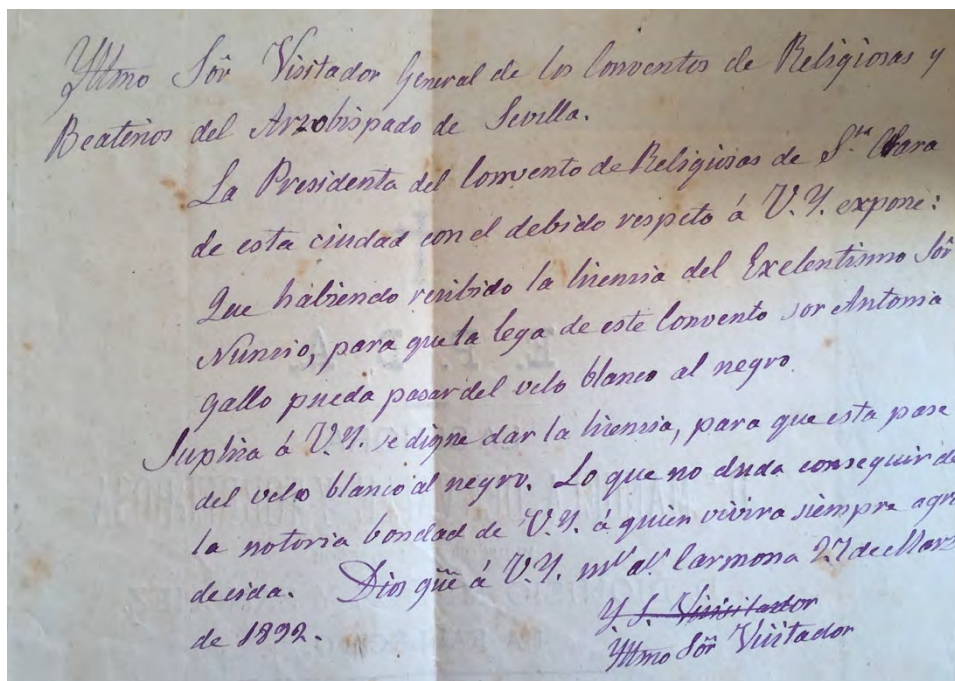 Yltmo Sôr Visitador General de los Conventos de Religiosas y
Beaterios del Arzobispado de Sevilla.
La Presidenta del Convento de Religiosas de Sta. Clara
de esta ciudad con el debido respeto á V.Y. expone:
Que habiendo recibido la licencia del Exelentismo Sôr
Nuncio, para que la lega de este Convento sor Antonia
gallo pueda pasar del velo blanco al negro.
Suplica á V.Y. se digne dar la licencia, para que esta pase
del velo blanco al negro. Lo que no duda conseguir de
la notoria bondad de V.Y. á quien vivira siempre agra
decida. Dios güe á V.Y. ms. as. Carmona 27 de Marz
de 1892.
Y. S. Visisitador
Yltmo Sôr Visitador